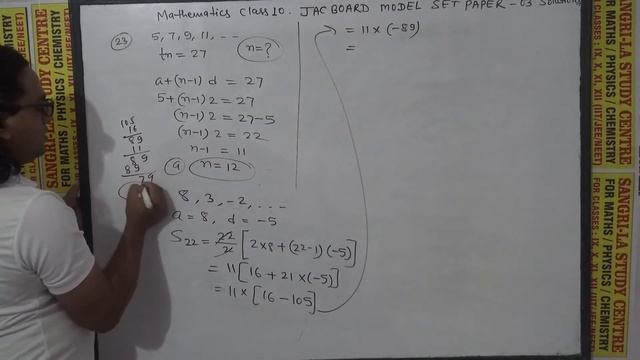 Mathematics Class 10. JAC BOARD MODEL SET PAPER - 03 Solutions
23 5, 7, 9, 11, ...
tn = 27 n = ?
a + (n-1) d = 27
5 + (n-1) 2 = 27
(n-1) 2 = 27-5
(n-1) 2 = 22
n-1 = 11
a n = 12
105
16
89
11
89
89
79
8, 3, -2, ...
a = 8, d = -5
S22 = 22/2 [2×8 + (22-1)(-5)]
= 11 [16 + 21×(-5)]
= 11 × [16 - 105]
= 11 × (-89)
=
SANGRI-LA STUDY CENTRE
FOR MATHS / PHYSICS / CHEMISTRY
FOR CLASSES : IX, X, XI, XII (IIT/JEE/NEET)
SANGRI-LA STUDY CENTRE
FOR MATHS / PHYSICS / CHEMISTRY
FOR CLASSES : IX, X, XI, XII (IIT/JEE/NEET)